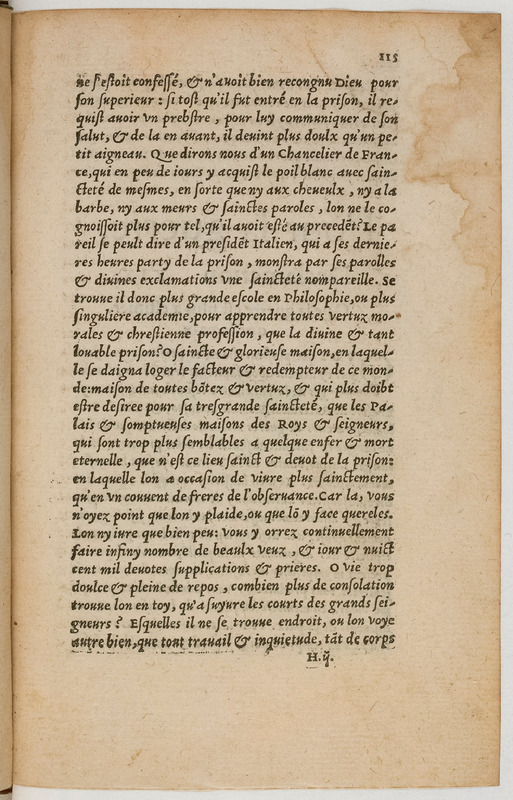 115
ne s'estoit confessé, & n'avoit bien recongnu Dieu pour
son superieur : si tost qu'il fut entré en la prison, il re-
quist avoir vn prebstre, pour luy communiquer de son
salut, & de la en auant, il deuint plus doulx qu'un pe-
tit aigneau. Que dirons nous d'un Chancelier de Fran-
ce, qui en peu de iours y acquist le poil blanc auec sain-
cteté de mesmes, en sorte que ny aux cheueulx, ny a la
barbe, ny aux meurs & sainctes paroles, lon ne le co-
gnoissoit plus pour tel, qu'il auoit esté au precedẽt? Le pa
reil se peult dire d'un presidẽt Italien, qui a ses dernie-
res heures party de la prison, monstra par ses parolles
& diuines exclamations vne saincteté nompareille. Se
trouue il donc plus grande escole en Philosophie, ou plus
singuliere academie, pour apprendre toutes vertuz mo-
rales & chrestienne profession, que la diuine & tant
louable prison? O saincte & glorieuse maison, en laquel-
le se daigna loger le facteur & redempteur de ce mon-
de: maison de toutes bõtez & vertuz, & qui plus doibt
estre desiree pour sa tresgrande saincteté, que les Pa-
lais & somptueuses maisons des Roys & seigneurs,
qui sont trop plus semblables a quelque enfer & mort
eternelle, que n'est ce lieu sainct & deuot de la prison:
en laquelle lon a occasion de viure plus sainctement,
qu'en vn couuent de freres de l'obseruance. Car la, vous
n'oyez point que lon y plaide, ou que lõ y face quereles.
Lon ny iure que bien peu: vous y orrez continuellement
faire infiny nombre de beaulx veuz, & iour & nuict
cent mil deuotes supplications & prieres. O vie trop
doulce & pleine de repos, combien plus de consolation
trouue lon en toy, qu'a suyure les courts des grands sei-
gneurs? Esquelles il ne se trouue endroit, ou lon voye
autre bien, que tout trauail & inquietude, tãt de corps
H. ij.